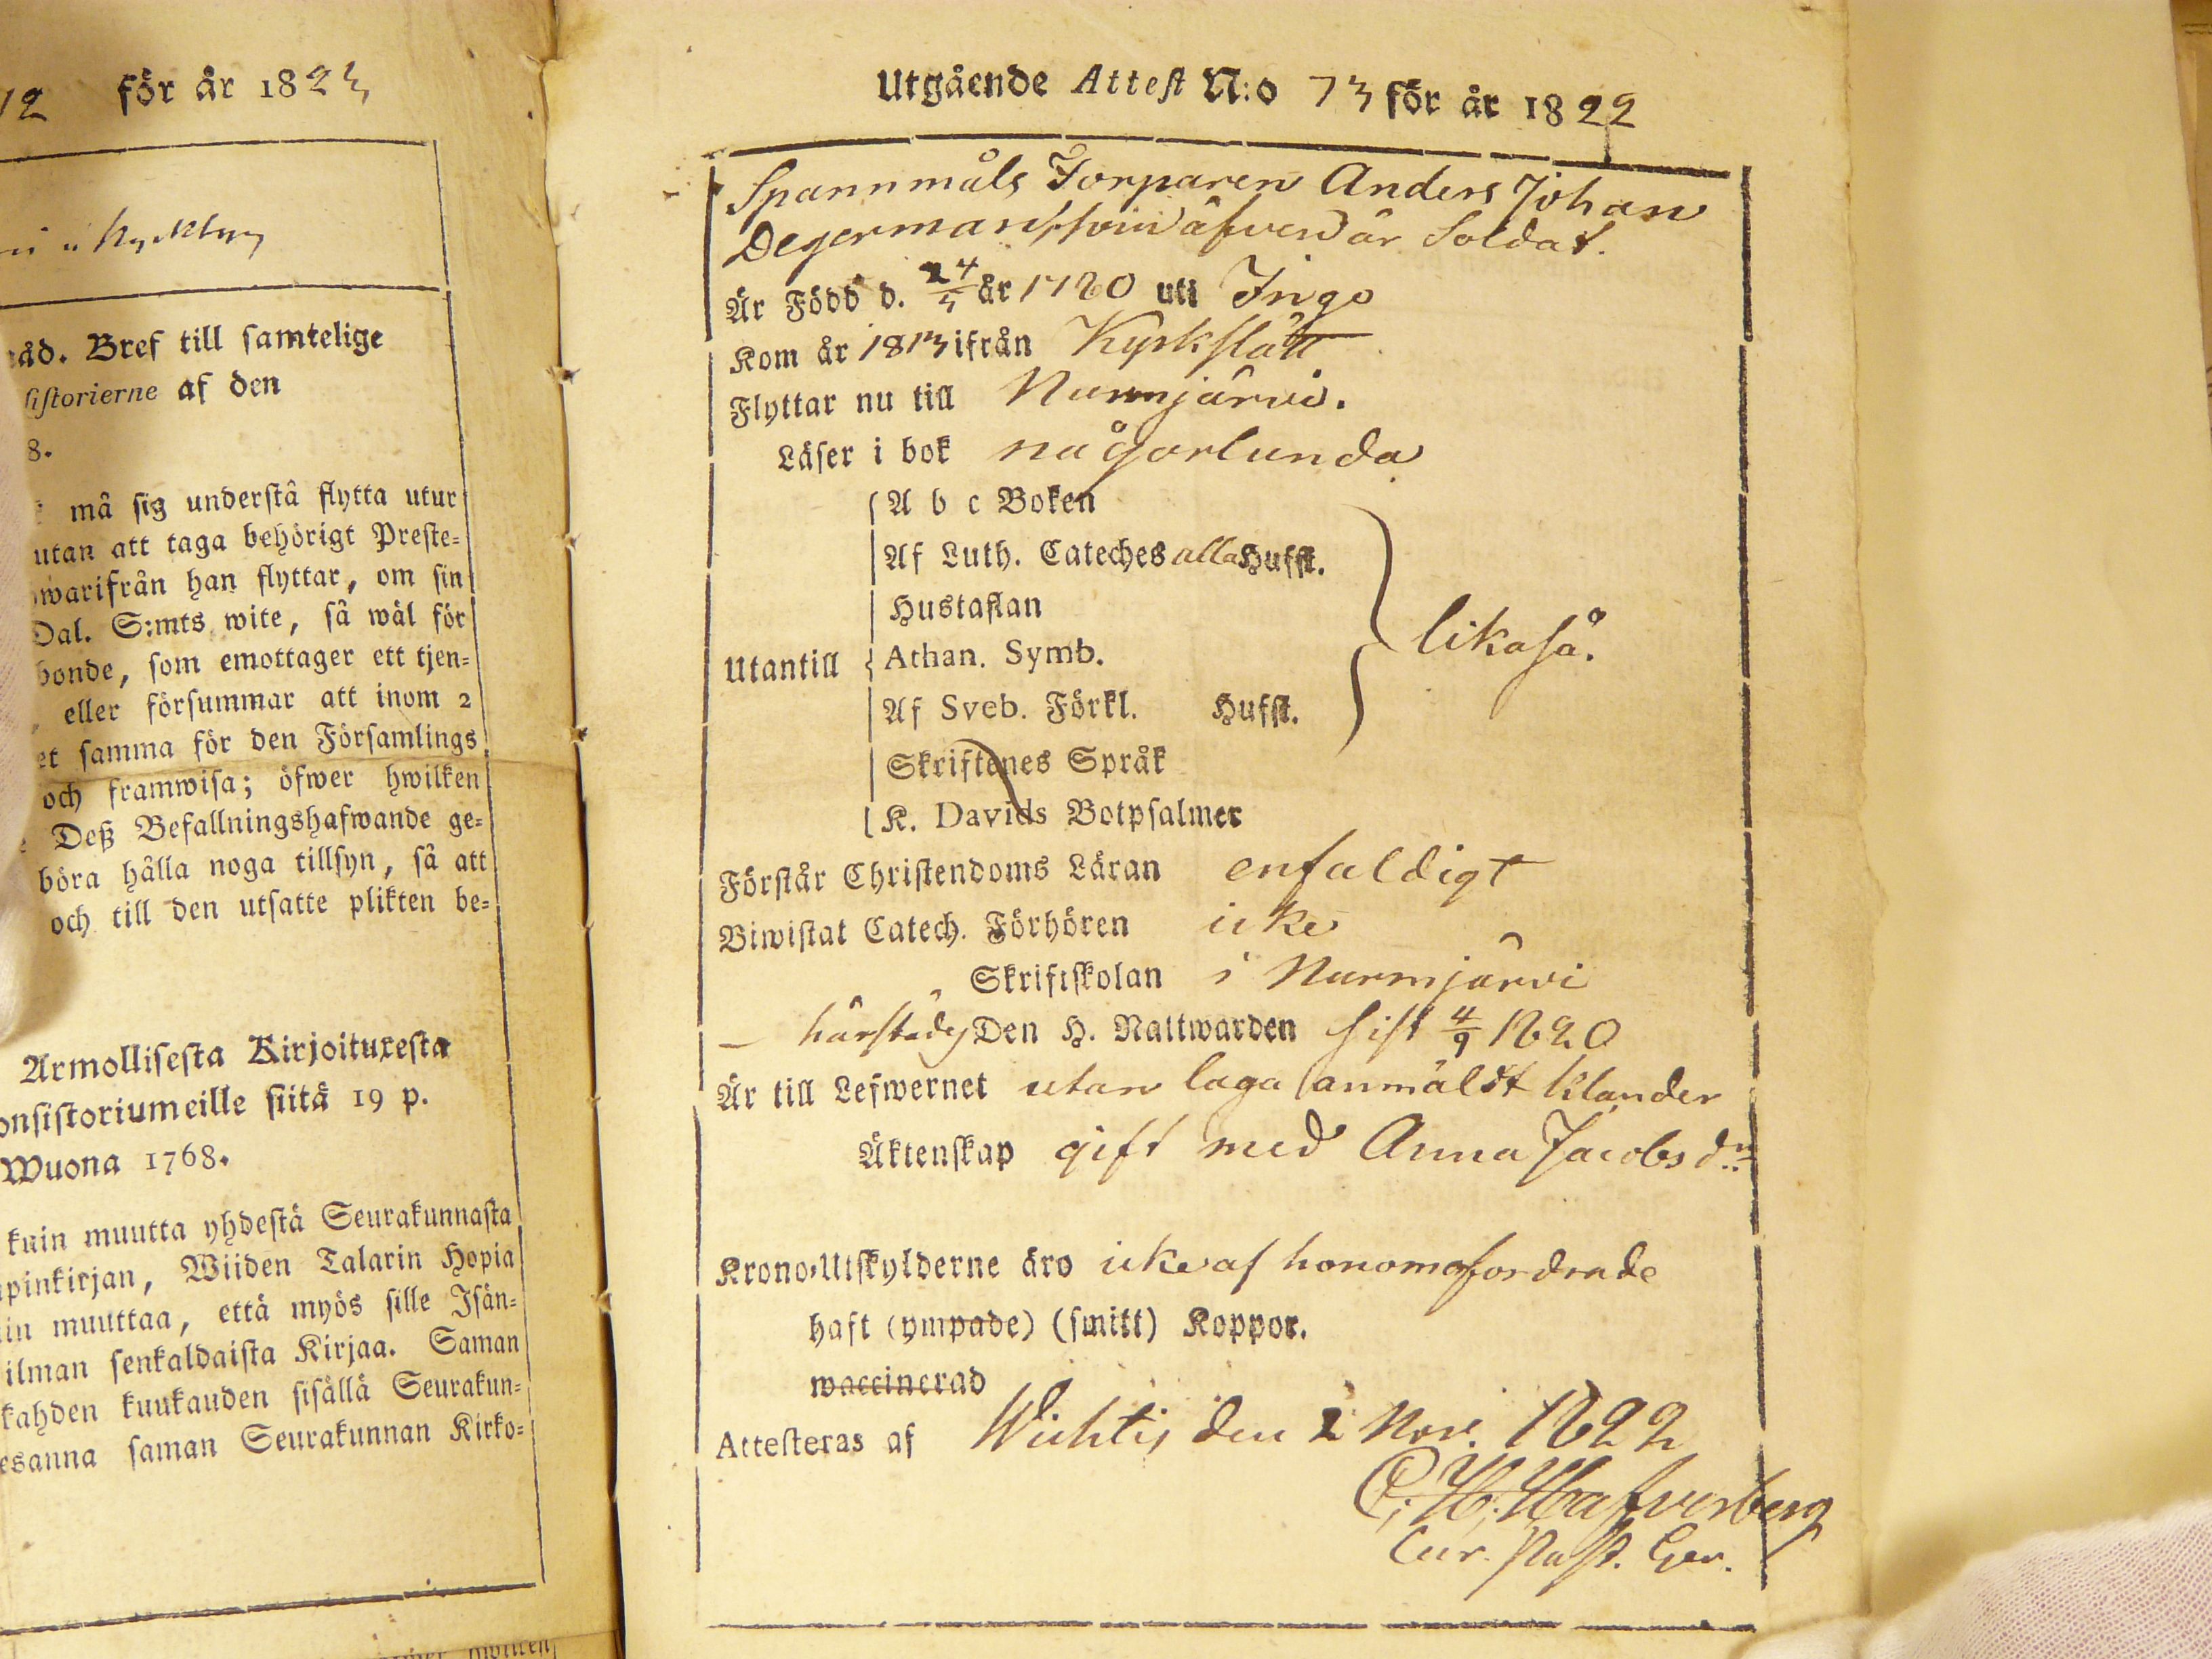 12 för år 1823
råd. Bref till samtelige
sistorierne af den
8.
må sig understå flytta utur
utan att taga behörigt Preste=
warifrån han flyttar, om sin
Dal. S:mts wite, så wäl för
bonde, som emottager ett tjen=
eller försummar att inom 2
et samma för den Församlings
och framwisa; öfwer hwilken
Deß Befallningshafwande ge=
böra hålla noga tillsyn, så att
och till den utsatte plikten be=
Armollisesta Kirjoituxesta
onsistoriumeille siitä 19 p.
Wuona 1768.
kuin muutta yhdestä Seurakunnasta
pinkirjan, Wiiden Talarin Hopia
in muuttaa, että myös sille Isän=
ilman senkaldaista Kirjaa. Saman
kahden kuukauden sisällä Seurakun=
esanna saman Seurakunnan Kirko=
Utgående Attest N:o 73 för år 1822
Spannmåls Torparen Anders Johan
Degerman, som äfven är Soldat.
Är Född d. 24/5 år 1780 uti Ingo
Kom år 1813 ifrån Kyrkslätt
Flyttar nu till Nurmjärvi.
Läser i bok någorlunda
A b c Boken
Af Luth. Cateches alla Hufst.
Hustaflan
Utantill Athan. Symb. likaså.
Af Sveb. Förkl. Hufst.
Skriftenes Språk
K. Davids Botpsalmer
Förstår Christendoms Läran enfaldigt
Biwistat Catech. Förhören icke
Skriftskolan i Nurmjärvi
härstädes Den H. Nattwarden sist 4/9 1820
Är till Lefwernet utan laga anmäldt klander
Äktenskap gift med Anna Jacobsdr
Krono-Utskylderne äro icke af honom fordrade
haft (ympade) (smitt) Koppor.
waccinerad
Attesteras af Wichtis den 2 Nov. 1822
C. H. Hafverberg
Cur. Past. Ger.